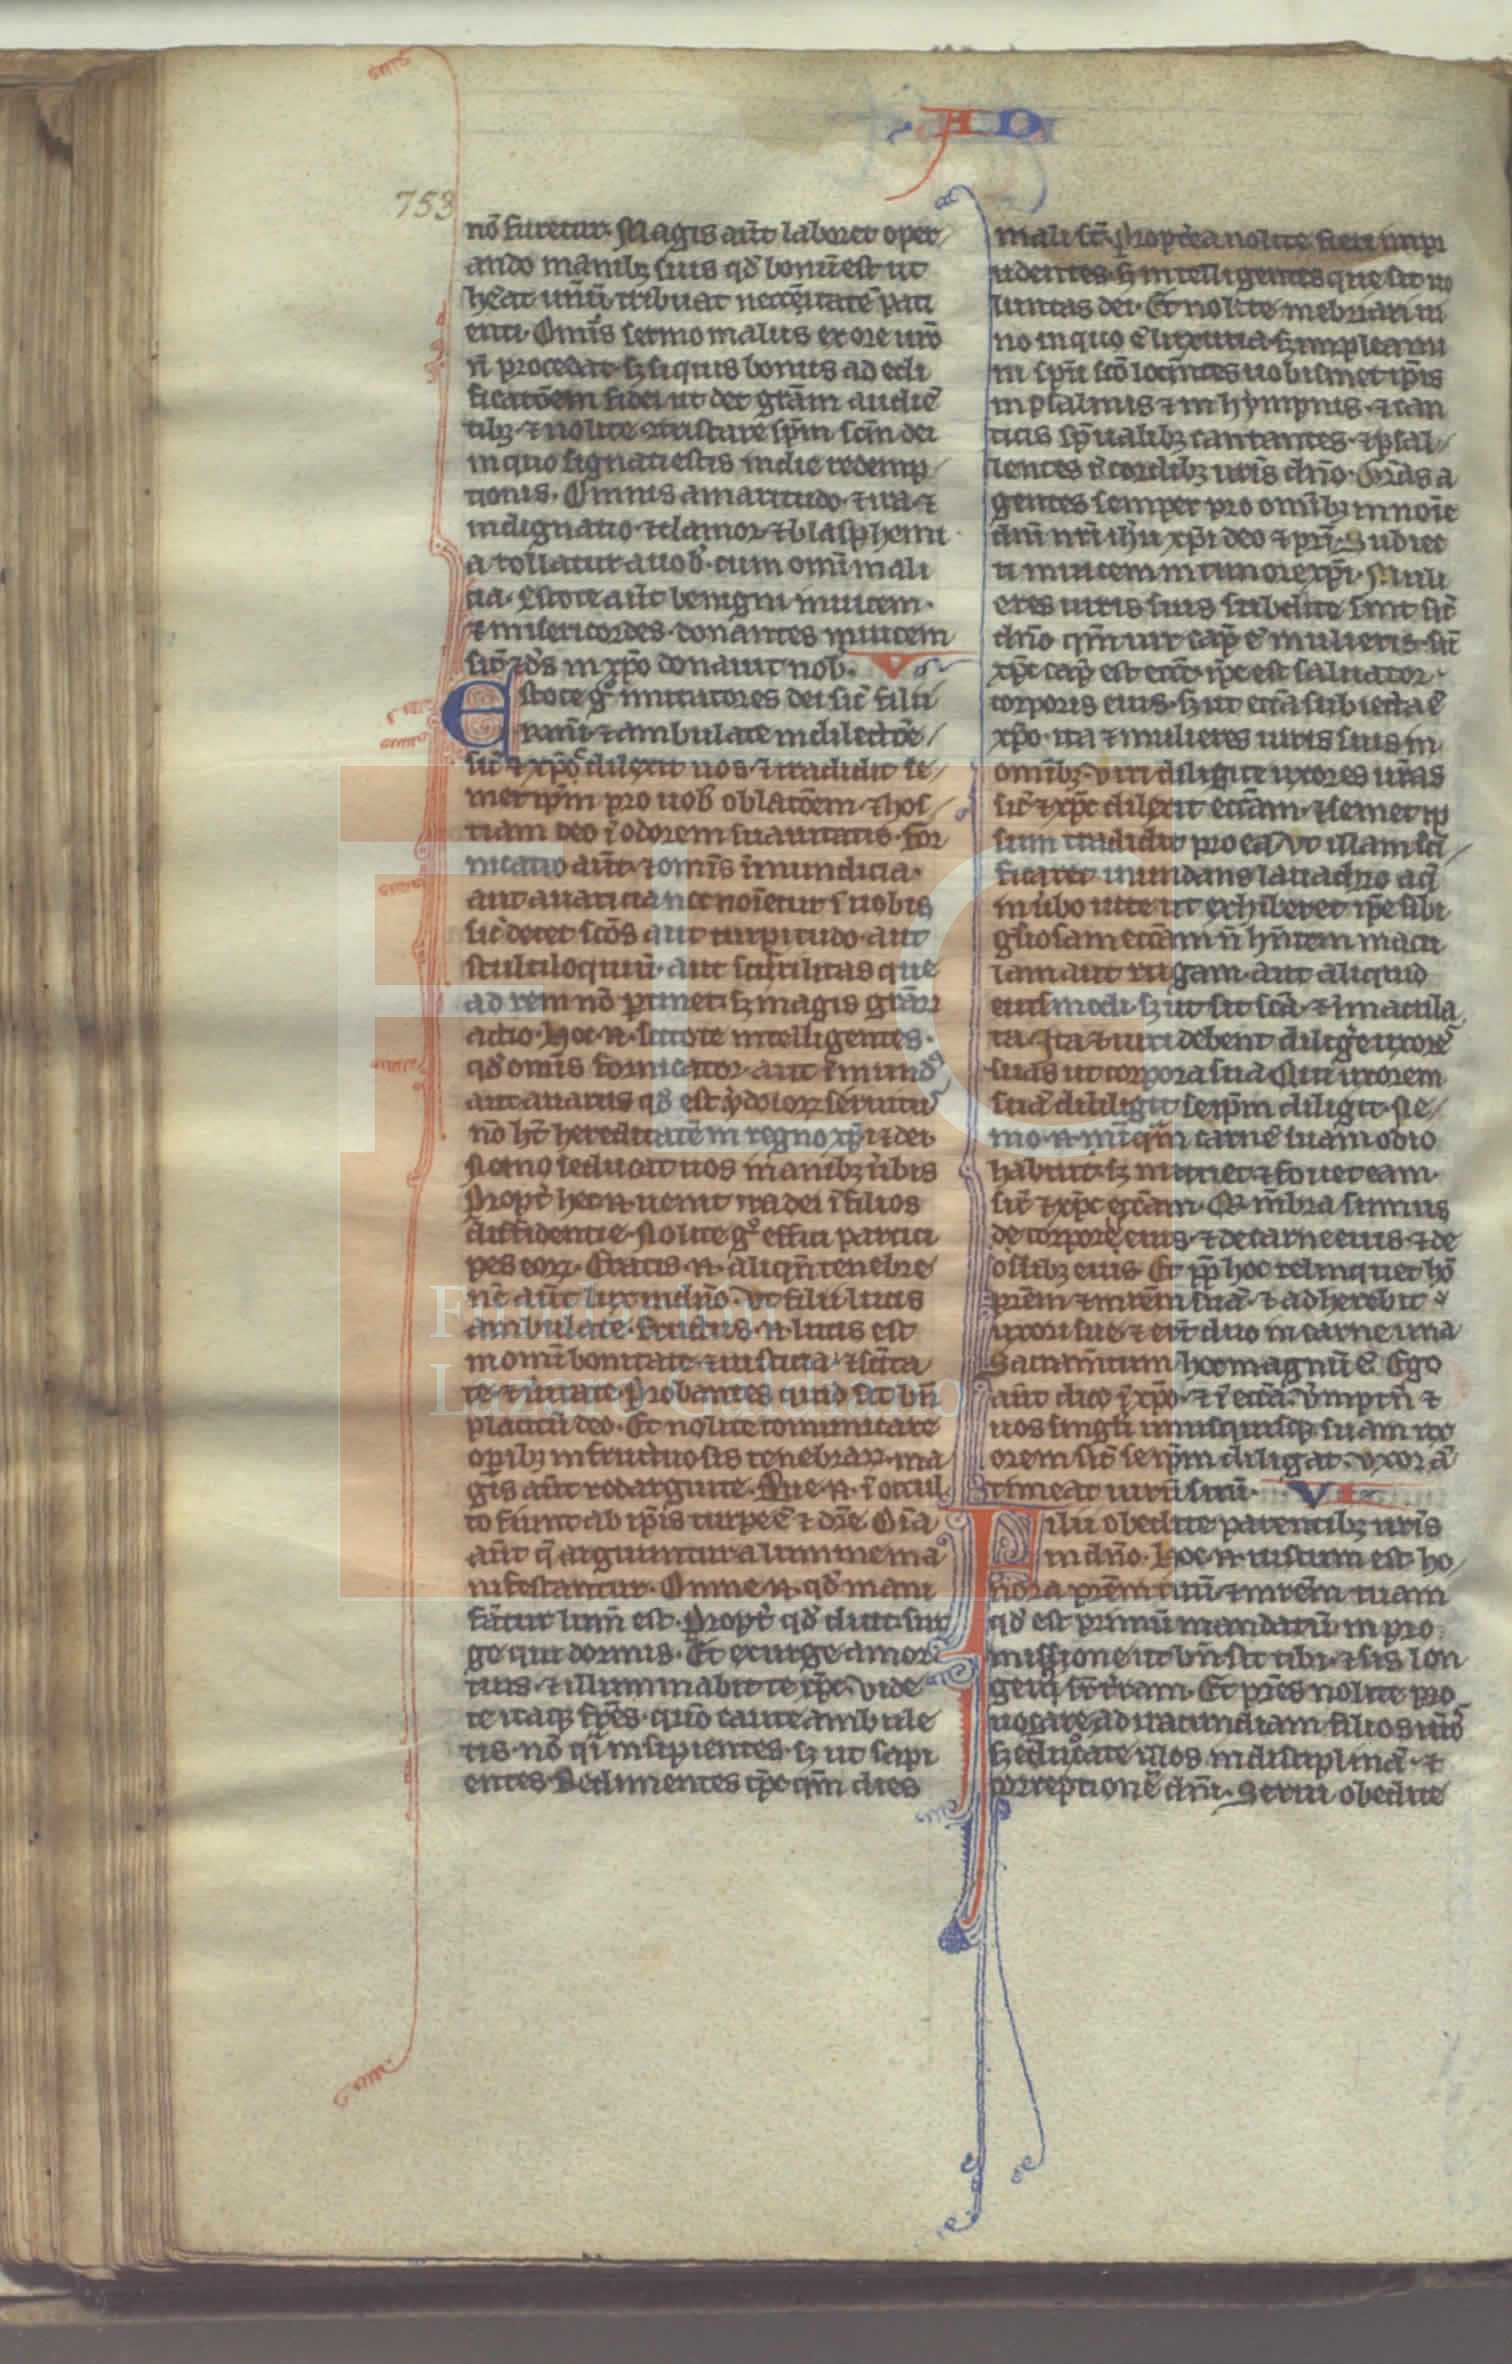 AD
753
nō furetur. Magis aūt laboret oper
ando manibꝫ suis qđ bonū est ut
hēat unū tribuat neccēitatē pati
enti. Omīs sermo malus ex ore urō
n̄ procedat. sꝫ siquis bonus ad edi
ficatōem fidei ut det grām audiē
tibꝫ. ⁊ nolite ⁊tristare sp̄m sc̄m dei
in quo signati estis in die redemp
tionis. Omnis amaritudo. ⁊ ira ⁊
indignatio. ⁊ clamor. ⁊ blasphemi
a tollatur a uob̄. cum omī mali
cia. Estote aūt benigni inuicem.
⁊ misericordes. donantes inuicem
sic̄ ⁊ đs in xp̄o donauit nob̄. V
Estote gͦ imitatores dei sic̄ filii
karīī ⁊ ambulate in dilectōe
sic̄ ⁊ xp̄c dilexit nos. ⁊ tradidit se
met ip̄m pro uob̄ oblatōem. ⁊ hos
tiam deo ī odorem suauitatis. For
nicatio aūt. ⁊ omīs īmundicia.
aut auaricia nec noīetur ī uobis
sic̄ decet sc̄os aut turpitudo. aut
stultiloquiū. aut scurilitas que
ad rem nō ꝑtinet. sꝫ magis grāꝝ
actio. Hoc .n. scitote intelligentes.
qđ omīs fornicator. aut īmundꝰ
aut auarus qđ est ydoloꝝ seruitꝰ
nō ht̄ hereditatē in regno xp̄i ⁊ dei.
Nemo seducat uos inanibꝫ ūbis
Propt̄ hec .n. uenit ira dei ī filios
diffidentie. Nolite gͦ effici partici
pes eoꝝ. Eratis .n. aliqn̄ tenebre
nc̄ aūt lux in dn̄o. Vt filii lucis
ambulate. Fructus .n. lucis est
in omī bonitate. ⁊ iusticia. ⁊ scīta
te. ⁊ ūitate. Probantes quid sit bn̄
placitū deo. Et nolite comunicare
oꝑibꝫ infructuosis tenebraꝝ. ma
gis aūt redarguite. Que .n. ī occul
to fiunt ab ip̄is turpe ē ⁊ dīce. Oīa
aūt q̄ arguuntur a lumine ma
nifestantur. Omne .n. qđ mani
fātur lum̄ est. Propt̄ qđ dicit. sur
ge qui dormis. Et exurge a mor
tuis. ⁊ illuminabit te xp̄c. Vide
te itaqꝫ fr̄es. quō caute ambule
tis. nō q̄i insipientes. sꝫ ut sapi
entes. Redimentes tp̄c qm̄ dies
mali st̄. Propterea nolite fieri impr
udentes. sꝫ intelligentes que sit uo
luntas dei. Et nolite inebriari ui
no in quo ē luxuria. sꝫ impleami
ni sp̄u sc̄o loq̄ntes uobismet ip̄is
in psalmis ⁊ in hympnis. ⁊ can
ticis sp̄ualibꝫ cantantes. ⁊ psal
lentes ī cordibꝫ ur̄is dn̄o. Gr̄as a
gentes semper pro omībꝫ in noīe
dn̄i nr̄i ih̄u xp̄i deo ⁊ pr̄i. Subiec
ti inuicem in timore xp̄i. Muli
eres uiris suis subdite sint sic̄
dn̄o qm̄ uir cap̄ ē mulieris. sic̄
xp̄c cap̄ est ecc̄e. ip̄e est saluator
corporis eius. sꝫ ut ecc̄a subiecta ē
xp̄o. ita ⁊ mulieres uiris suis in
omībꝫ. Viri diligite uxores ur̄as
sic̄ ⁊ xp̄c dilexit ecc̄am. ⁊ semet ip̄
sum tradidit pro ea. Vt illam sc̄i
ficaret mundans lauacro aq̄
in ūbo uite ut exhiberet ip̄e sibi
gl̄iosam ecc̄am n̄ hn̄tem macu
lam aut rugam. aut aliquid
eiusmodi. sꝫ ut sit sc̄a. ⁊ īmacula
ta. Ita ⁊ uiri debent diligēe uxorē
suas ut corpora sua. Qui uxorem
suā dililigit se ip̄m diligit. Ne
mo .n. ūq̄m carnē suam odio
habuit. sꝫ nutriet. ⁊ fouet eam.
sic̄ ⁊ xp̄c ecc̄am. Q̄ m̄bra sumus
de corpore eius. ⁊ de carne eius. ⁊ de
ossibꝫ eius. Et ꝓp̄ hoc relinquet hō
pr̄em ⁊ mr̄em suā. ⁊ adherebit
uxori sue. ⁊ erūt duo in carne una
Sacram̄tum hoc magnū ē. Ego
aūt dico ī xp̄o. ⁊ ī ecc̄a. V̄mptn̄ ⁊
uos singli unusquisqꝫ suam ux
orem sic̄ se ip̄m diligat. Vxor ā
timeat uirū suū. VI
Filii obedite parentibꝫ ur̄is
in dn̄o. Hoc .n. iustum est. ho
nora pr̄em tuū. ⁊ mr̄em tuam
qđ est primū mandatū in pro
missione ut bn̄ sit tibi. ⁊ sis lon
geuꝰ sr̄ t̄ram. Et pr̄es nolite pro
uocare ad iracundiam filios ur̄os
sꝫ educate illos in disciplina. ⁊
correptionē dn̄i. Serui obedite